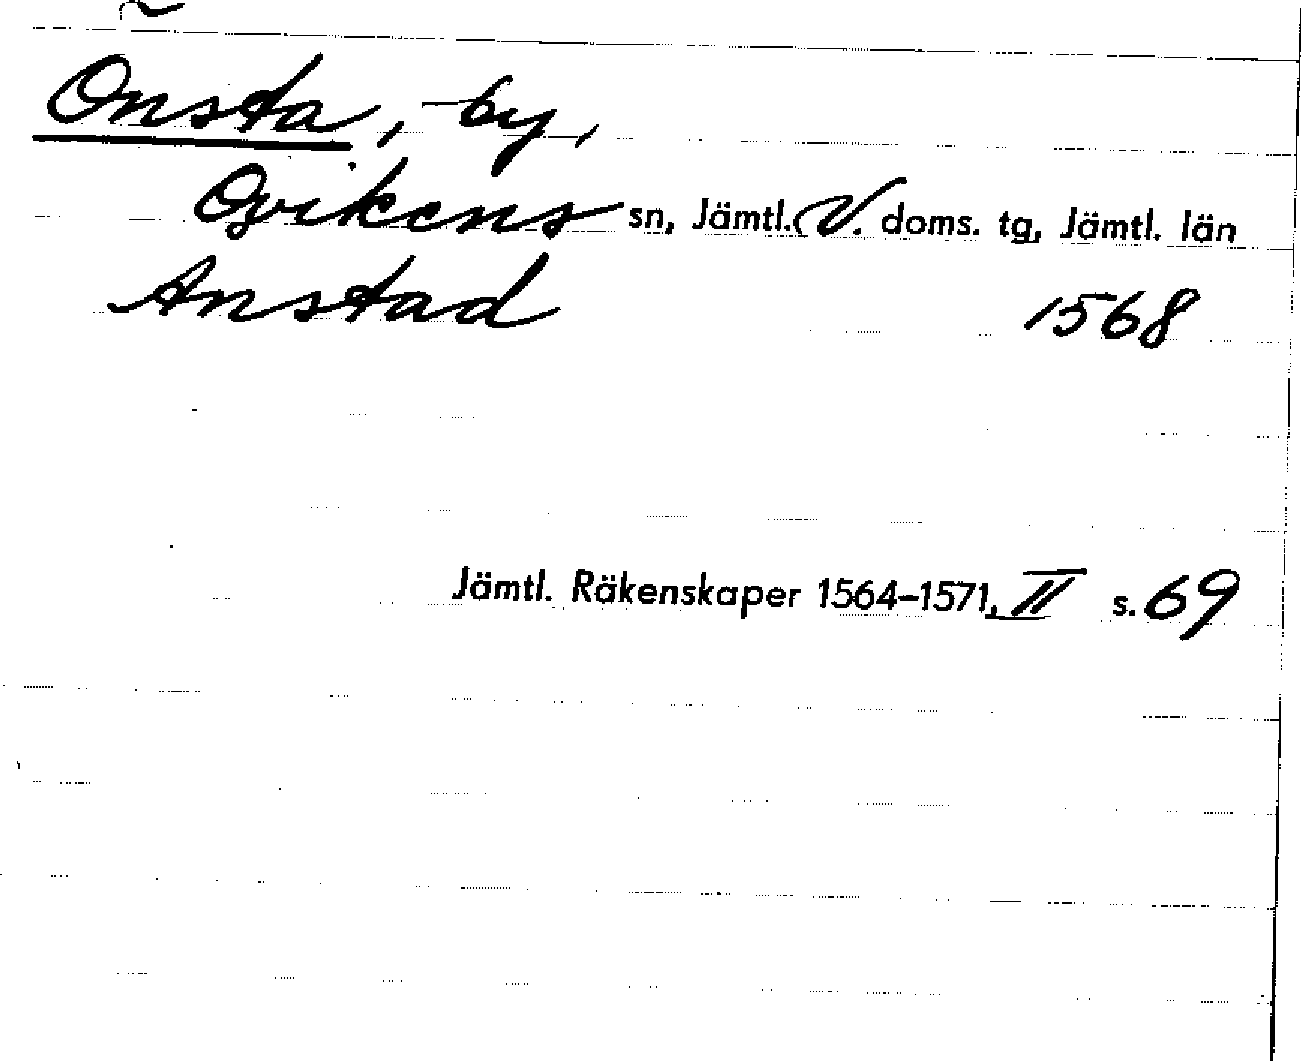 Önsta, by,
Ovikens sn, Jämtl. V. doms. tg, Jämtl. län
Anstad 1568
Jämtl. Räkenskaper 1564–1571, II s. 69